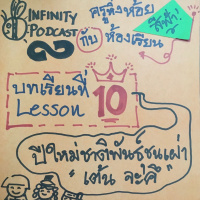 INFINITY
PODCAST
ครูหิ่งห้อย
กับ ห้องเรียน
สีฟ้า!
บทเรียนที่
Lesson 10
ปีใหม่ชาติพันธุ์ชนเผ่า
"เต้น จะคึ"